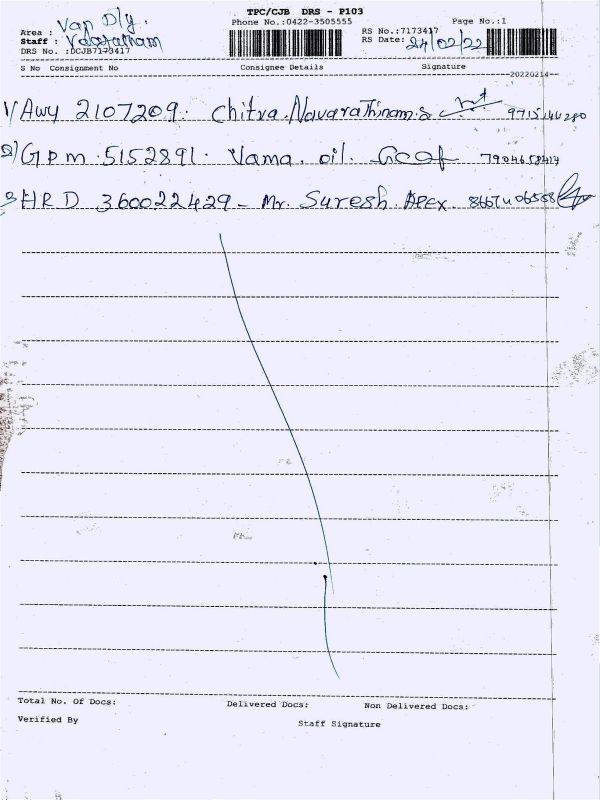 TPC/CJB DRS - P103
Phone No.:0422-3505555
Page No.:1
Area : Van Dly.
RS No.:7173417
Staff :
RS Date: 24/02/22
DRS No. :DCJB7173417
S No Consignment No Consignee Details Signature
--20220214--
1) Awy 2107209. Chitra. Navarathinam.s
2) GPM 5152891. Vama. oil. 7904658414
3 HRD 360022429 - Mr. Suresh Apex.
Total No. Of Docs: Delivered Docs: Non Delivered Docs:
Verified By Staff Signature